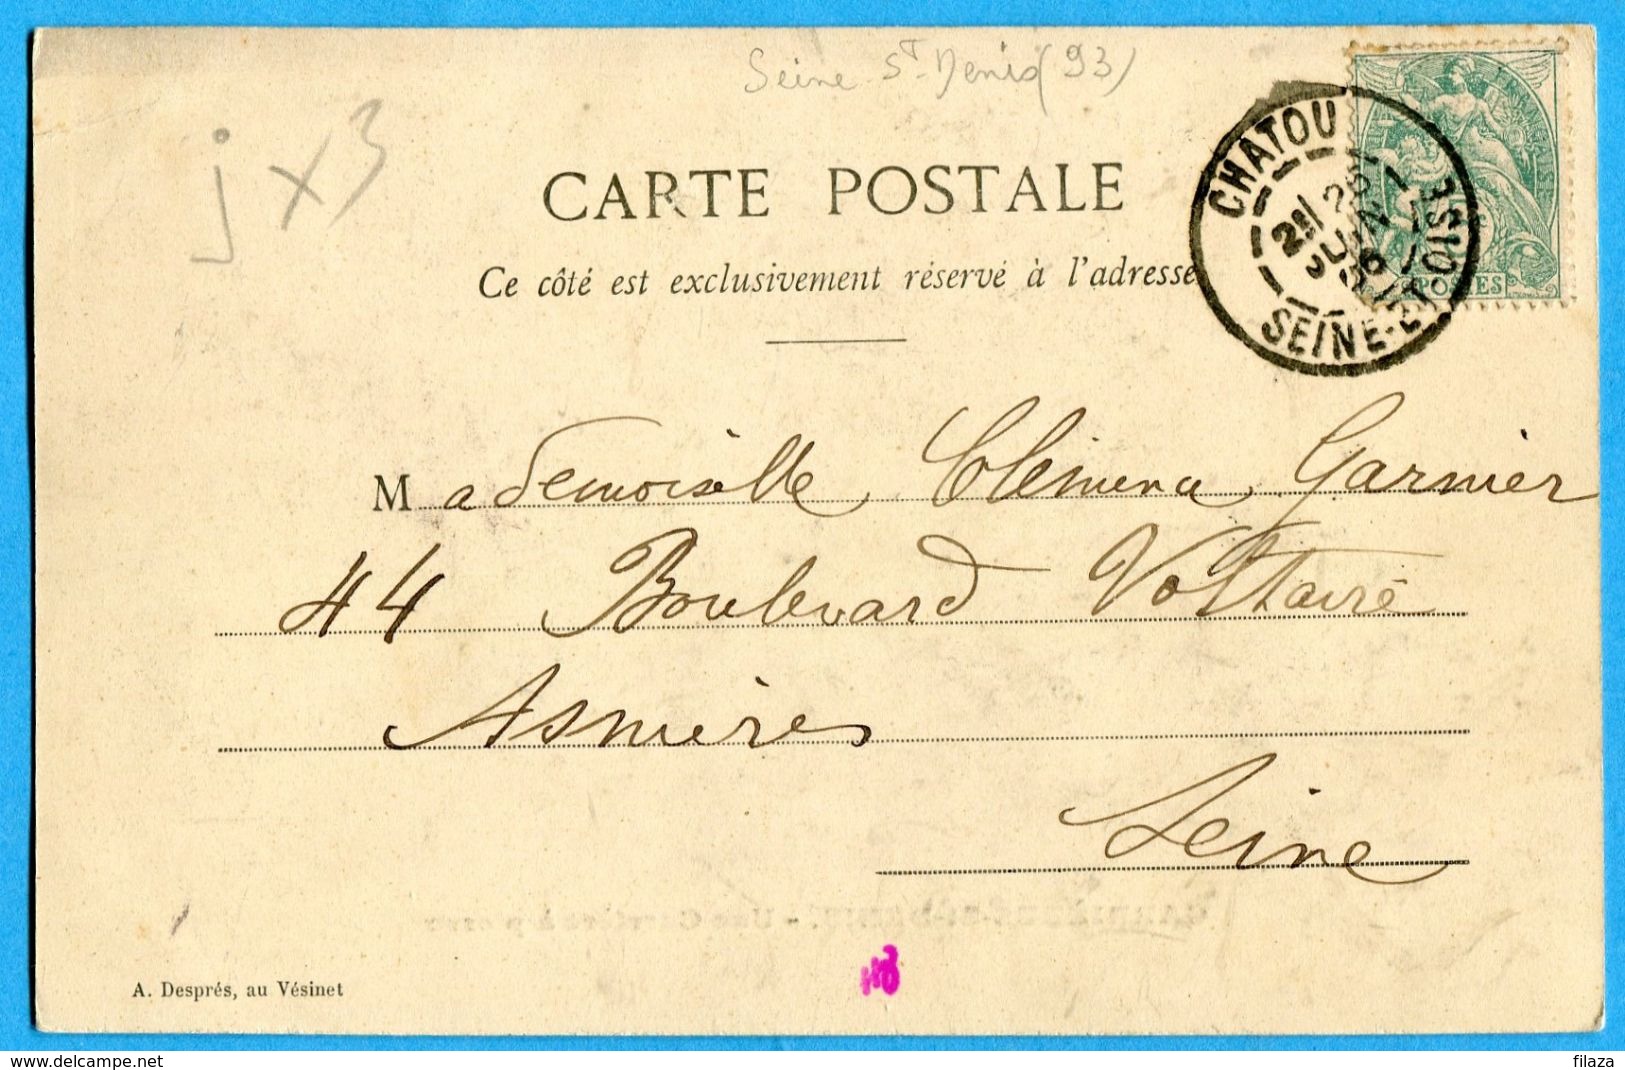 Seine St Denis (93)
j x 3
CARTE POSTALE
Ce côté est exclusivement réservé à l'adresse
CHATOU
SEINE-ET-OISE
POSTES
Mademoiselle Clémence Garnier
44 Boulevard Voltaire
Asnières
Seine
A. Després, au Vésinet
www.delcampe.net
filaza